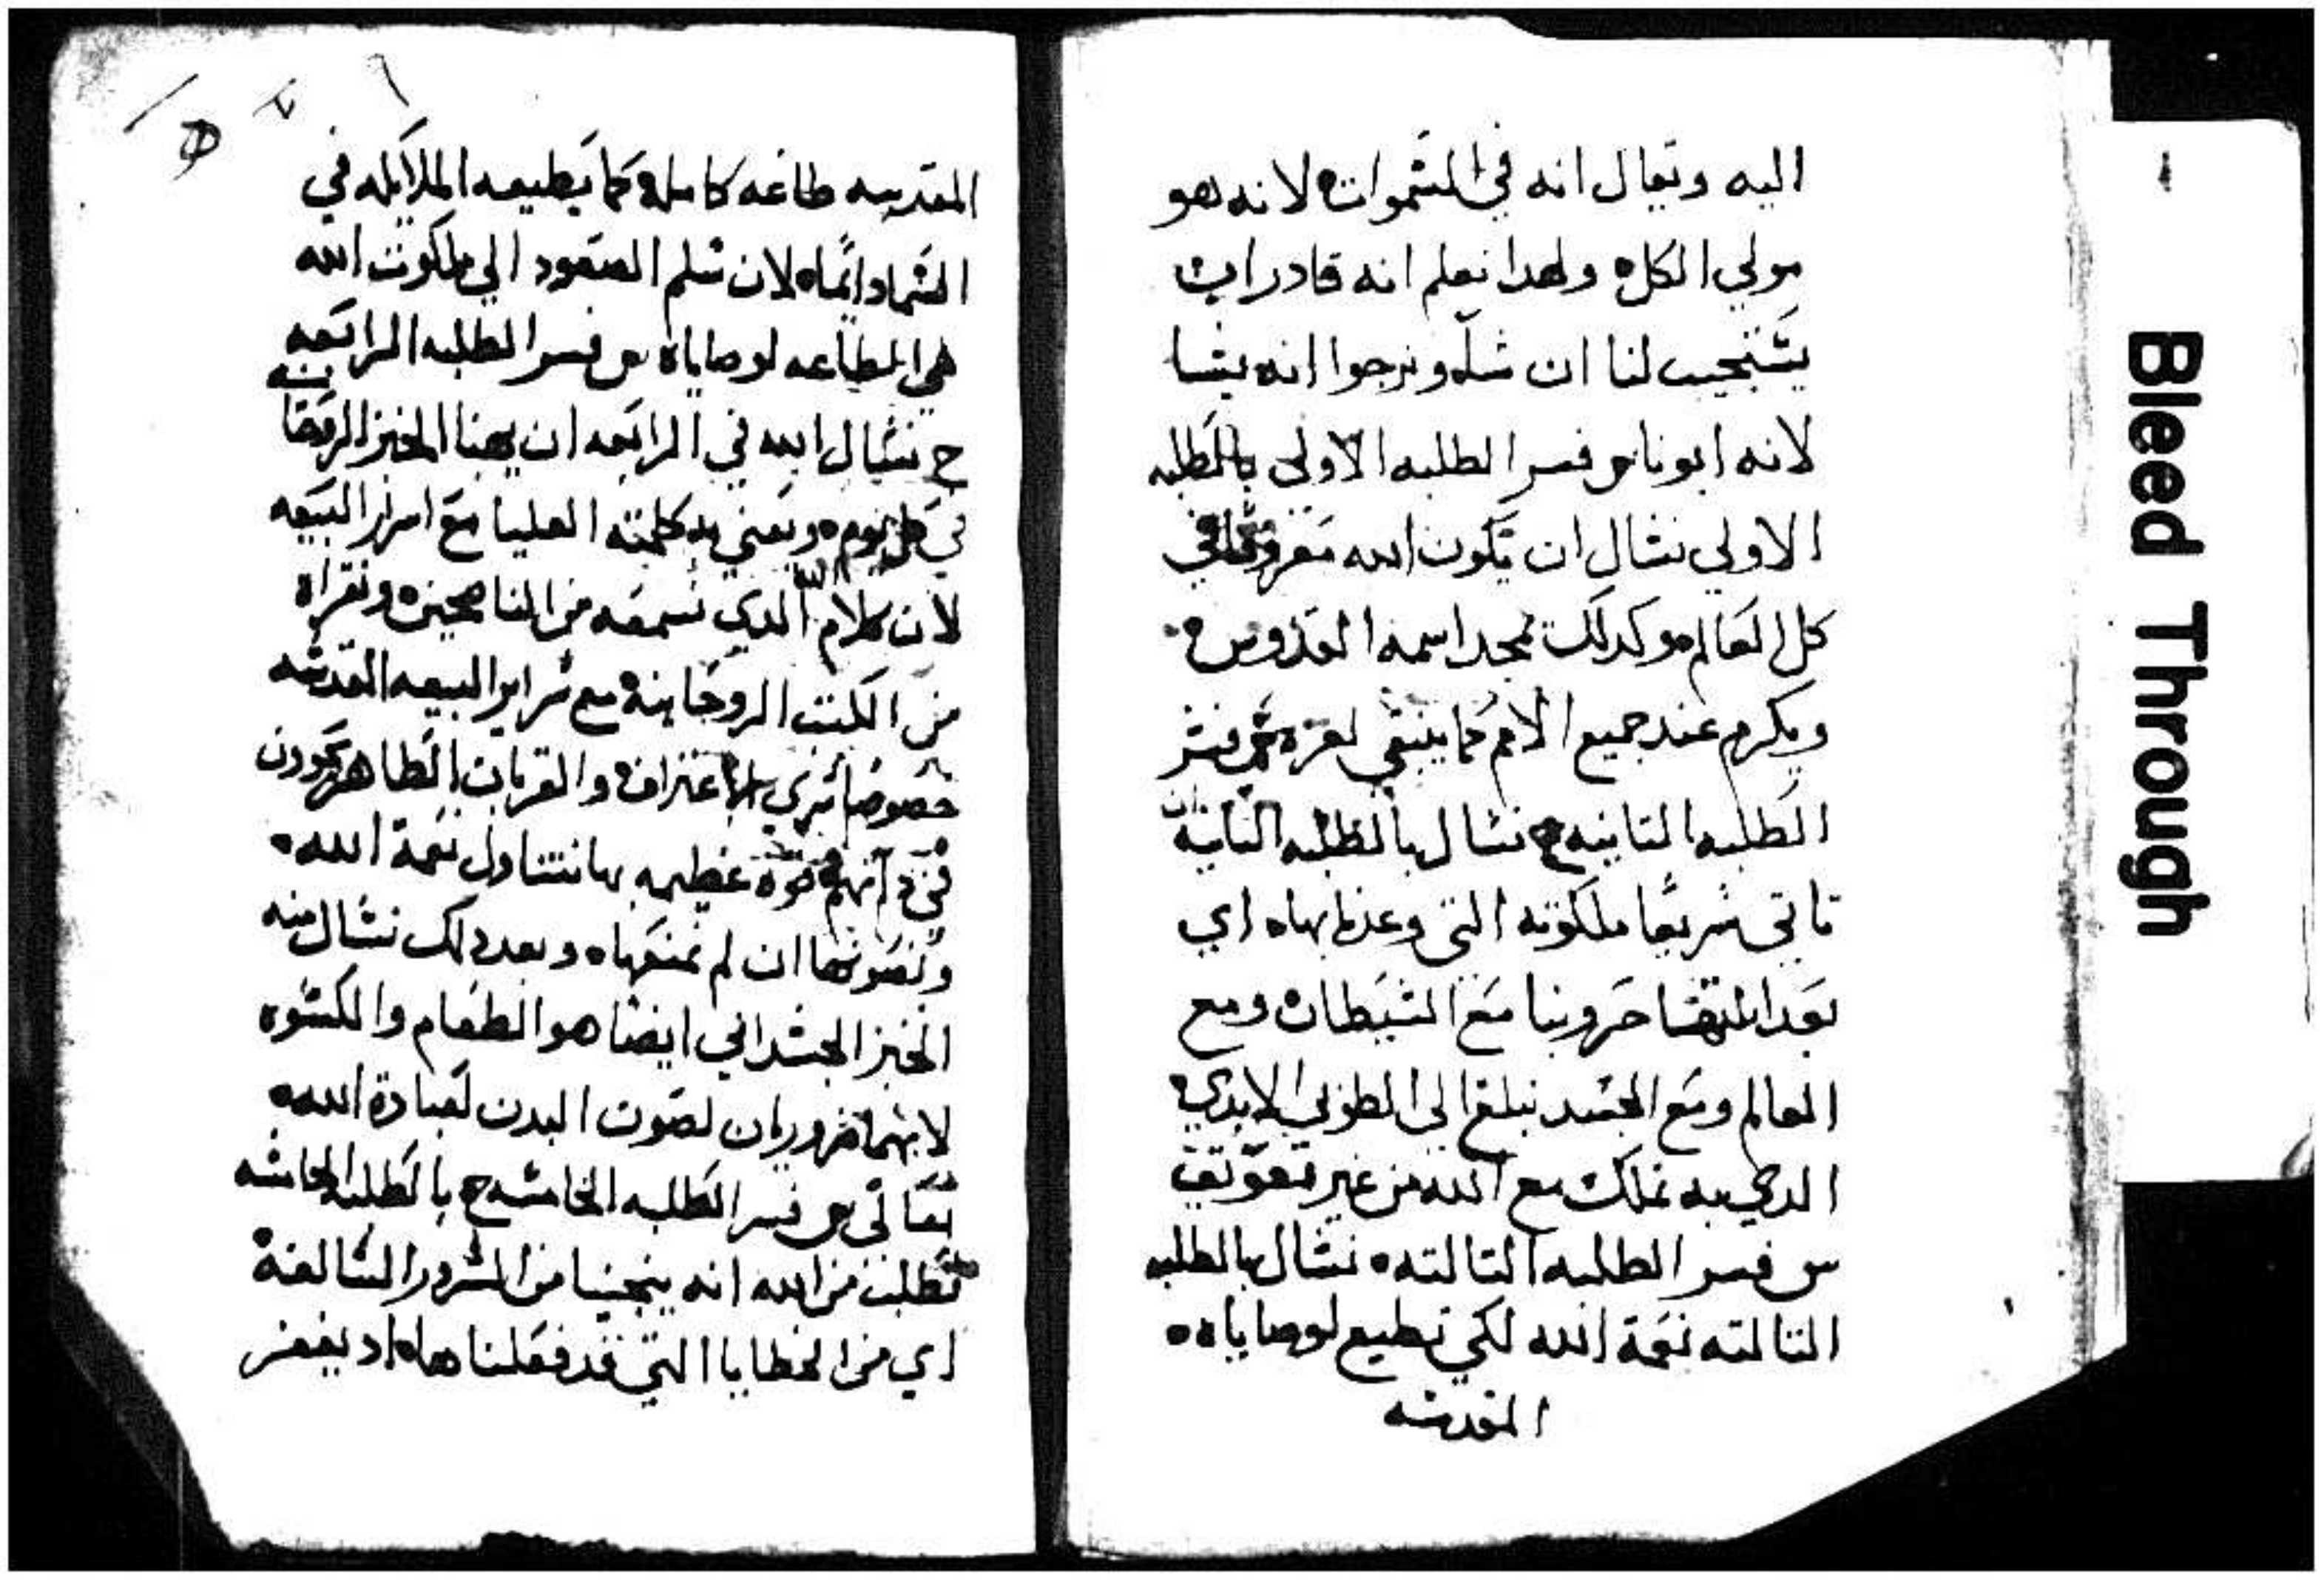 اليه ويقال انه في السموات لانه هو
مولي الكل ولهدا نعلم انه قادر ان
يستجيب لنا ان شاء ونرجوا انه يشا
لانه ابونا س فسر الطلبه الاولى بالطلبه
الاولي نسال ان يكون الله معروفا في
كل العالم وكدلك تمجد اسمه القدوس
ويكرم عند جميع الامم كما ينبغي لعزه س فسر
الطلبه التانيه ج نسال بالطلبه التانية ان
تاتي سريعا ملكوته التي وعدنا بها اي
بعد انقضا حروبنا مع الشيطان ومع
العالم ومع الجسد نبلغ الى الطوبي الابدي
الدي به نملك مع الله من غير تعويق
س فسر الطلبه التالته نسال بالطلبه
التالته نعمة الله لكي نطيع لوصاياه
المقدسه
المقدسه طاعه كامله كما يطيعه الملايكه في
السما دايما لان سلم الصعود الي ملكوت الله
هي الطاعه لوصاياه س فسر الطلبه الرابعه
ج نسال الله في الرابعه ان يهبنا الخبز الروحا
نيه
في كل يوم ويعني به كلمته العليا مع اسرار البيعه
لان كلام الله الدي نسمعه من الناصحين ونقراه
من الكتب الروحانيه مع سراير البيعه المقدسه
خصوصا سري الاعتراف والقربان الطاهر يحوون
في داتهم قوة عظيمه بها نتناول نعمة الله
ونصونها ان لم نمنعها وبعد دلك نسال منه
الخبز الجسداني ايضا هو الطعام والكسوه
لانهما ضروريان لصون البدن لعبادة الله
تعالى س فسر الطلبه الخامسه ج بالطلبه الخامسه
نطلب من الله انه ينجينا من الشرور السالفة
اي من الخطايا التي قد فعلناها اد يغفر
Bleed Through